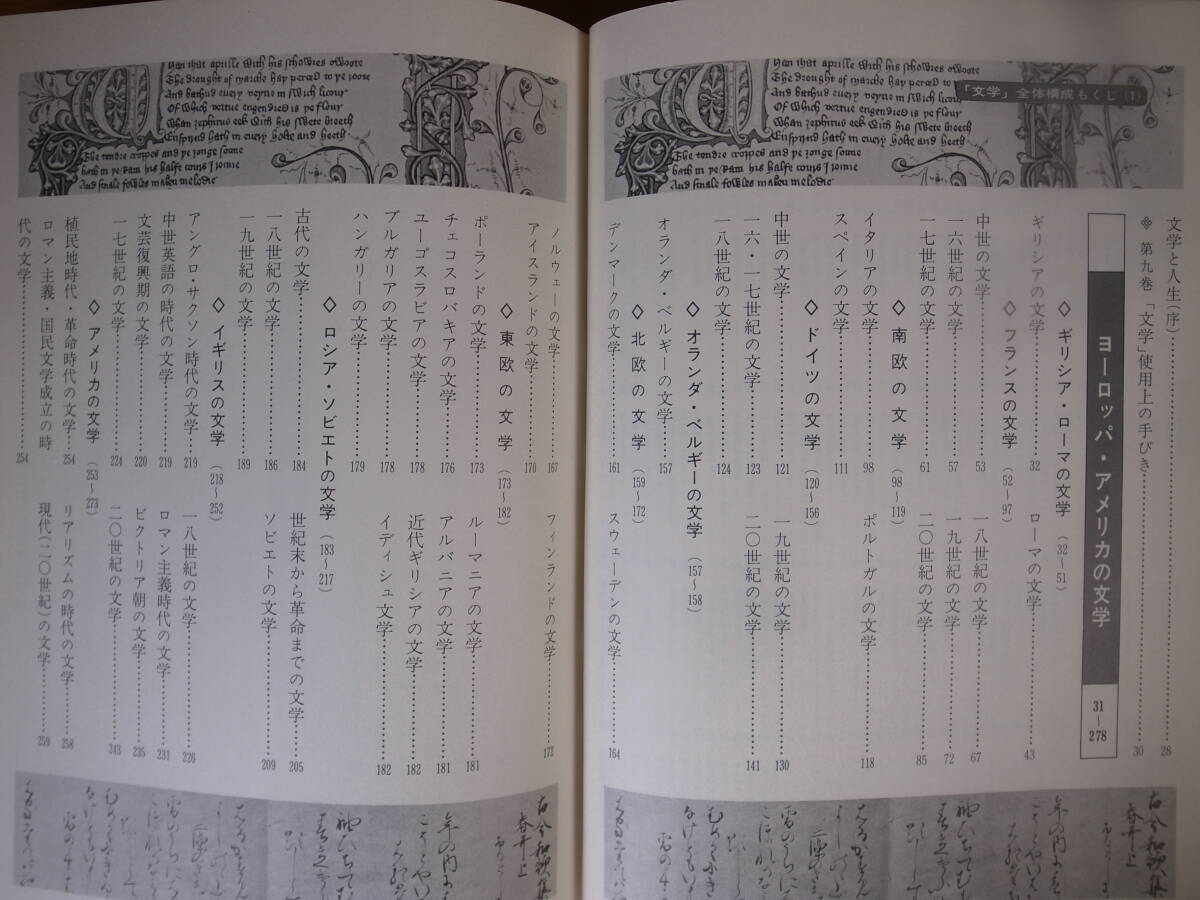 「文学」全体構成もくじ(1)
Whan that aprille with his schowres swoote
The drought of marche hap perced to pe roote
And bathud every veyne in swich licour
Of which vertue engendred is pe flour
Whan zephirus eek with his swete breeth
Enspirud hath in every holte and heeth
The tendre croppes and pe zonge sonne
hath in pe Ram his halfe cours Ironne
And smale fowles maken melodie
文学と人生(序)……28
◈ 第九巻「文学」使用上の手びき……30
ヨーロッパ・アメリカの文学 31〜278
◇ ギリシア・ローマの文学 (32〜51)
ギリシアの文学……32
ローマの文学……43
◇ フランスの文学 (52〜97)
中世の文学……53
一六世紀の文学……57
一七世紀の文学……61
一八世紀の文学……67
一九世紀の文学……72
二〇世紀の文学……85
◇ 南欧の文学 (98〜119)
イタリアの文学……98
スペインの文学……111
ポルトガルの文学……118
◇ ドイツの文学 (120〜156)
中世の文学……121
一六・一七世紀の文学……123
一八世紀の文学……124
一九世紀の文学……130
二〇世紀の文学……141
◇ オランダ・ベルギーの文学 (157〜158)
オランダ・ベルギーの文学……157
◇ 北欧の文学 (159〜172)
デンマークの文学……161
スウェーデンの文学……164
Whan that aprille with his schowres swoote
The drought of marche hap perced to pe roote
And bathud every veyne in swich licour
Of which vertue engendred is pe flour
Whan zephirus eek with his swete breeth
Enspirud hath in every holte and heeth
The tendre croppes and pe zonge sonne
hath in pe Ram his halfe cours Ironne
And smale fowles maken melodie
ノルウェーの文学……167
アイスランドの文学……170
フィンランドの文学……172
◇ 東欧の文学 (173〜182)
ポーランドの文学……173
チェコスロバキアの文学……176
ユーゴスラビアの文学……178
ブルガリアの文学……178
ハンガリーの文学……179
ルーマニアの文学……181
アルバニアの文学……181
近代ギリシアの文学……182
イディシュ文学……182
◇ ロシア・ソビエトの文学 (183〜217)
古代の文学……184
一八世紀の文学……186
一九世紀の文学……189
世紀末から革命までの文学……205
ソビエトの文学……209
◇ イギリスの文学 (218〜252)
アングロ・サクソン時代の文学……219
中世英語の時代の文学……219
文芸復興期の文学……220
一七世紀の文学……224
一八世紀の文学……226
ロマン主義時代の文学……231
ビクトリア朝の文学……235
二〇世紀の文学……243
◇ アメリカの文学 (253〜273)
植民地時代・革命時代の文学……254
ロマン主義・国民文学成立の時
代の文学……254
リアリズムの時代の文学……258
現代(二〇世紀)の文学……259
古今和歌集
春哥上